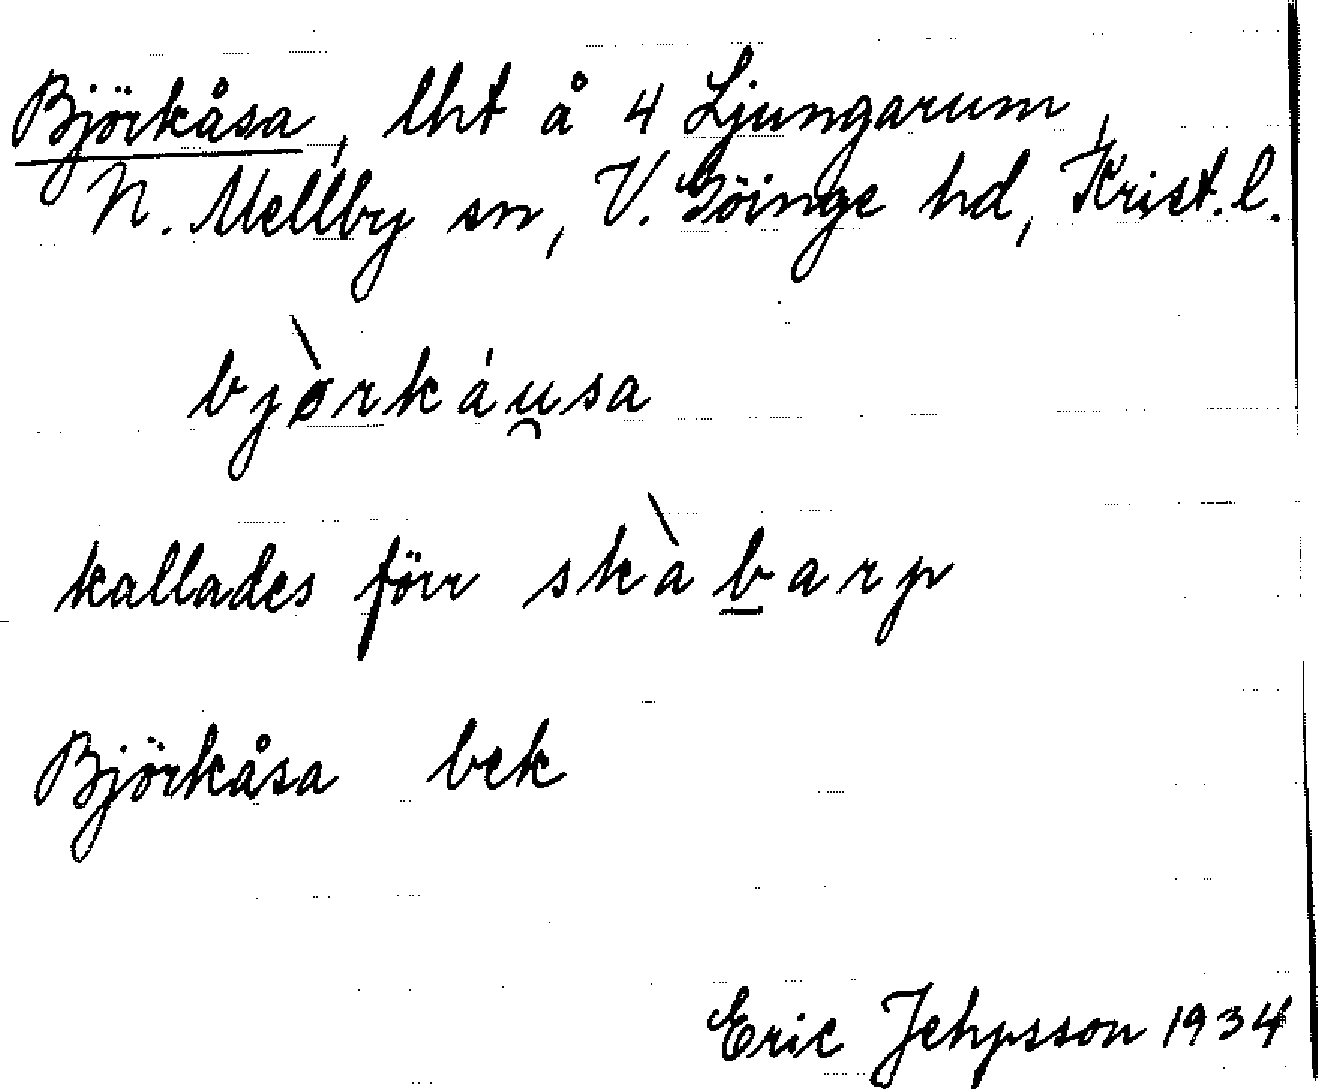 Björkåsa, lht å 4 Ljungarum,
N. Mellby sn, V. Göinge hd, Krist. l.
bjòrkáu̯sa
kallades förr skàb̲arp
Björkåsa bek
Eric Jehpsson 1934